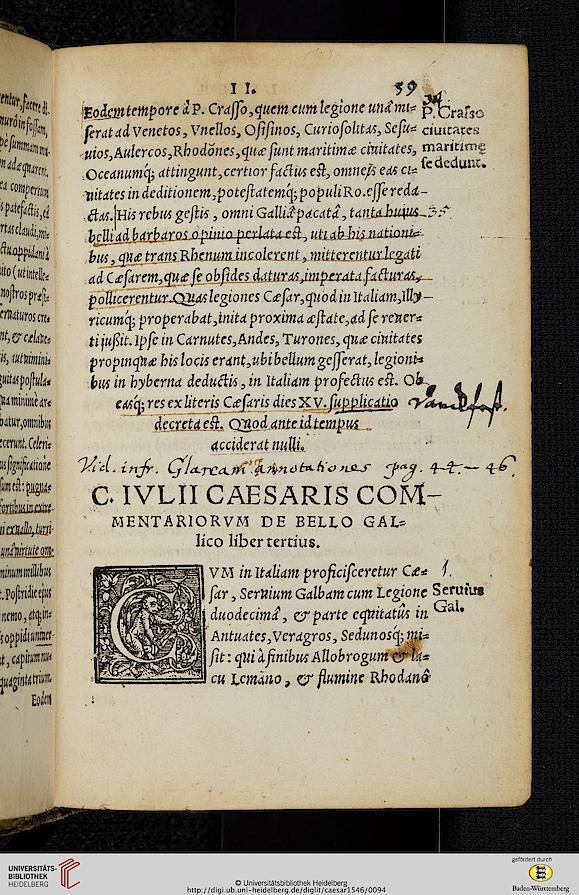 II. 39
Eodem tempore à P. Crasso, quem cum legione unâ mi=
serat ad Venetos, Vnellos, Osisinos, Curiosolitas, Sesu=
uios, Aulercos, Rhodŏnes, quæ sunt maritimæ ciuitates,
Oceanumq́; attingunt, certior factus est, omneis eas ci=
uitates in deditionem, potestatemq́; populi Ro. esse reda-
ctas. His rebus gestis, omni Galliâ pacatâ, tanta huius
belli ad barbaros opinio perlata est, uti ab his nationi=
bus, quæ trans Rhenum incolerent, mitterentur legati
ad Cæsarem, quæ se obsides daturas, imperata facturas,
pollicerentur. Quas legiones Cæsar, quòd in Italiam, Illy-
ricumq́; properabat, inita proxima æstate, ad se reuer=
ti iußit. Ipse in Carnutes, Andes, Turones, quæ ciuitates
propinquæ his locis erant, ubi bellum gesserat, legioni=
bus in hyberna deductis, in Italiam profectus est. Ob
easq́; res ex literis Cæsaris dies XV. supplicatio
decreta est. Quod ante id tempus
acciderat nulli.
34
P. Crasso
ciuitates
maritimę
se dedunt.
35
Vid. infr. Glareani annotationes pag. 44. – 46.
C. IVLII CAESARIS COM-
MENTARIORVM DE BELLO GAL=
lico liber tertius.
CVM in Italiam proficisceretur Cæ=
sar, Seruium Galbam cum Legione
duodecimâ, & parte equitatûs in
Antuates, Veragros, Sedunosq́; mi=
sit: qui à finibus Allobrogum & la=
cu Lemano, & flumine Rhodanô
1.
Seruius
Gal.
Eodem
UNIVERSITÄTS-
BIBLIOTHEK
HEIDELBERG
© Universitätsbibliothek Heidelberg
http://digi.ub.uni-heidelberg.de/diglit/caesar1546/0094
gefördert durch
Baden-Württemberg